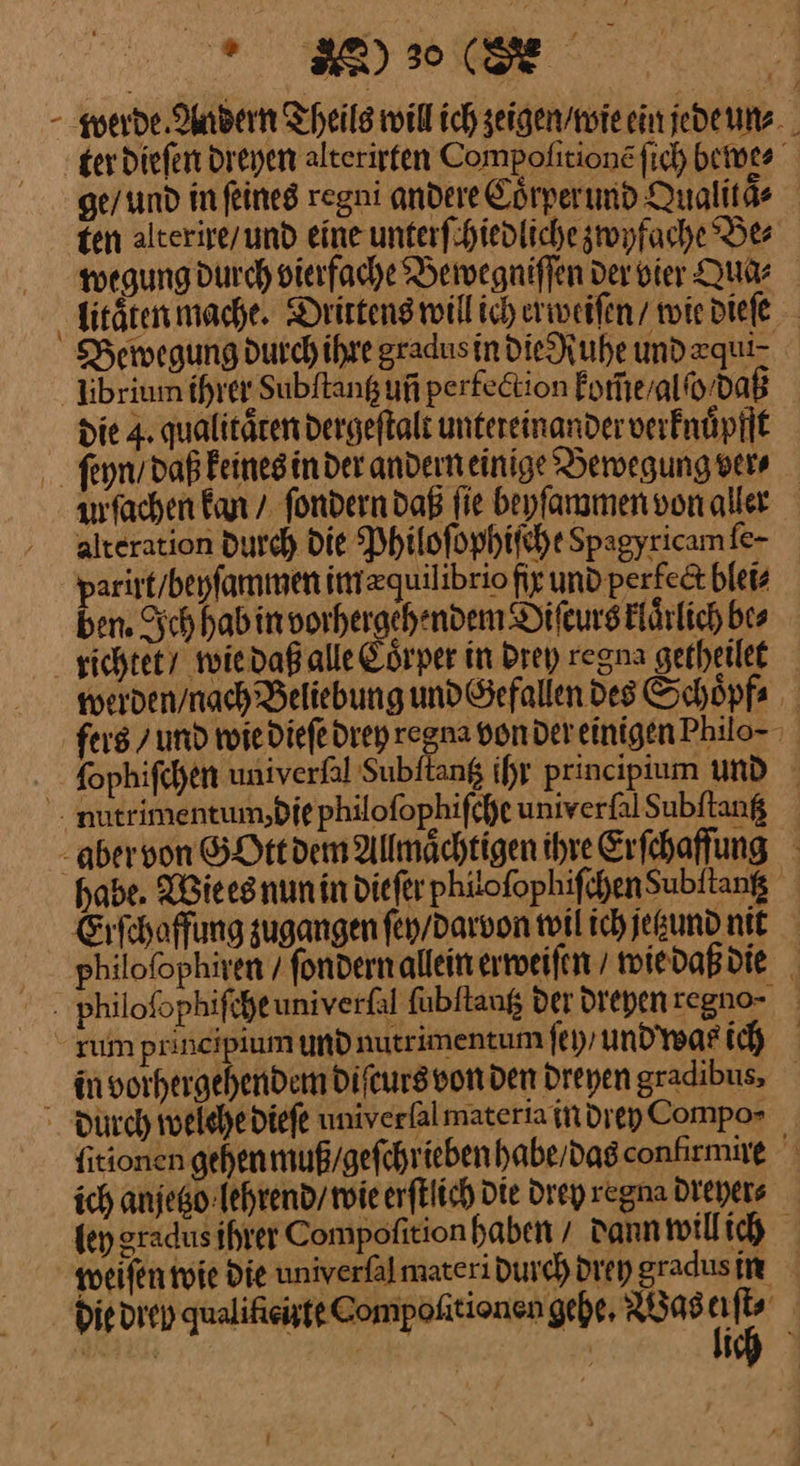 ) 30 (
werde. Andern Theils will ich zeigen/wie ein jede un⸗
ter dieſen dreyen alterirten Compoſitionē ſich bewe⸗
ge/ und in ſeines regni andere Cörper und Qualitä⸗
ten alterire/ und eine unterſchiedliche zwyfache Be⸗
wegung durch vierfache Bewegniſſen der vier Qua⸗
litäten mache. Drittens will ich erweiſen / wie dieſe
Bewegung durch ihre gradus in die Ruhe und æqui-
librium ihrer Subſtantz uñ perfection kom̃e/alſo/daß
die 4. qualitäten dergeſtalt untereinander verknüpfft
ſeyn/ daß keines in der andern einige Bewegung ver⸗
urſachen kan / ſondern daß ſie beyſammen von aller
alteration durch die Philoſophiſche Spagyricam ſe-
parirt/beyſammen im æquilibrio fix und perfect blei⸗
ben. Ich hab in vorhergehendem Diſcurs klärlich be⸗
richtet/ wie daß alle Cörper in drey regna getheilet
werden/nach Beliebung und Gefallen des Schöpf⸗
fers / und wie dieſe drey regna von der einigen Philo-
ſophiſchen univerſal Subſtantz ihr principium und
nutrimentum, die philoſophiſche univerſal Subſtantz
aber von GOtt dem Allmächtigen ihre Erſchaffung
habe. Wie es nun in dieſer philoſophiſchen Subſtantz
Erſchaffung zugangen ſey/darvon wil ich jetzund nit
philoſophiren / ſondern allein erweiſen / wie daß die
philoſophiſche univerſal ſubſtantz der dreyen regno-
rum principium und nutrimentum ſey/ und was ich
in vorhergehendem diſcurs von den dreyen gradibus,
durch welche dieſe univerſal materia in drey Compo-
ſitionen gehen muß/geſchrieben habe/das confirmire
ich anjetzo lehrend/ wie erſtlich die drey regna dreyer⸗
ley gradus ihrer Compoſition haben / dann will ich
weiſen wie die univerſal materi durch drey gradus in
die drey qualificirte Compoſitionen gehe. Was erſt⸗
lich